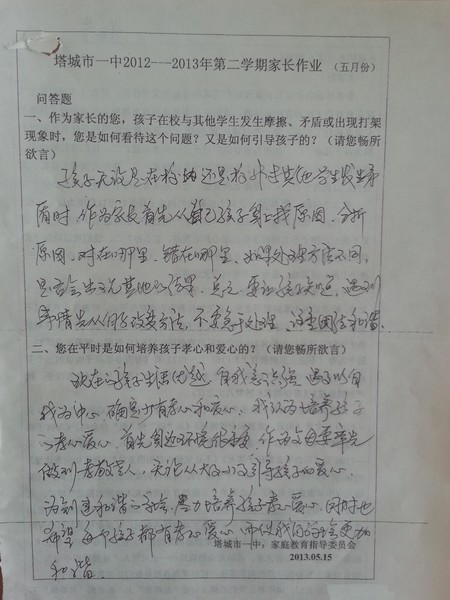 塔城市一中2012---2013年第二学期家长作业 （五月份）
问答题
一、作为家长的您，孩子在校与其他学生发生摩擦、矛盾或出现打架
现象时，您是如何看待这个问题？又是如何引导孩子的？（请您畅所
欲言）
孩子无论是在校内还是校外与其他学生发生矛
盾时，作为家长首先从自己孩子身上找原因，分析
原因，对在哪里，错在哪里，如果处理方法不同，
是否会出现其他的结果。总之，要让孩子
事情先从自身改变方法，不要急于处理，要团结和谐。
二、您在平时是如何培养孩子孝心和爱心的？（请您畅所欲言）
现在的孩子生活优越，自我意识强，遇事以自
我为中心，确实少有孝心和爱心，我认为培养孩子
的孝心爱心，首先周边环境很重要，作为父母要率先
做到孝敬老人，无论从大的小的引导孩子的爱心，
为创建和谐的社会，尽力培养孩子孝心爱心，同时也
希望每个孩子都有孝心爱心，使我们的社会更加
和谐。
塔城市一中，家庭教育指导委员会
2013.05.15